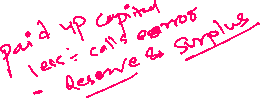 paid up capital
less:- calls error
- Reserve & Surplus